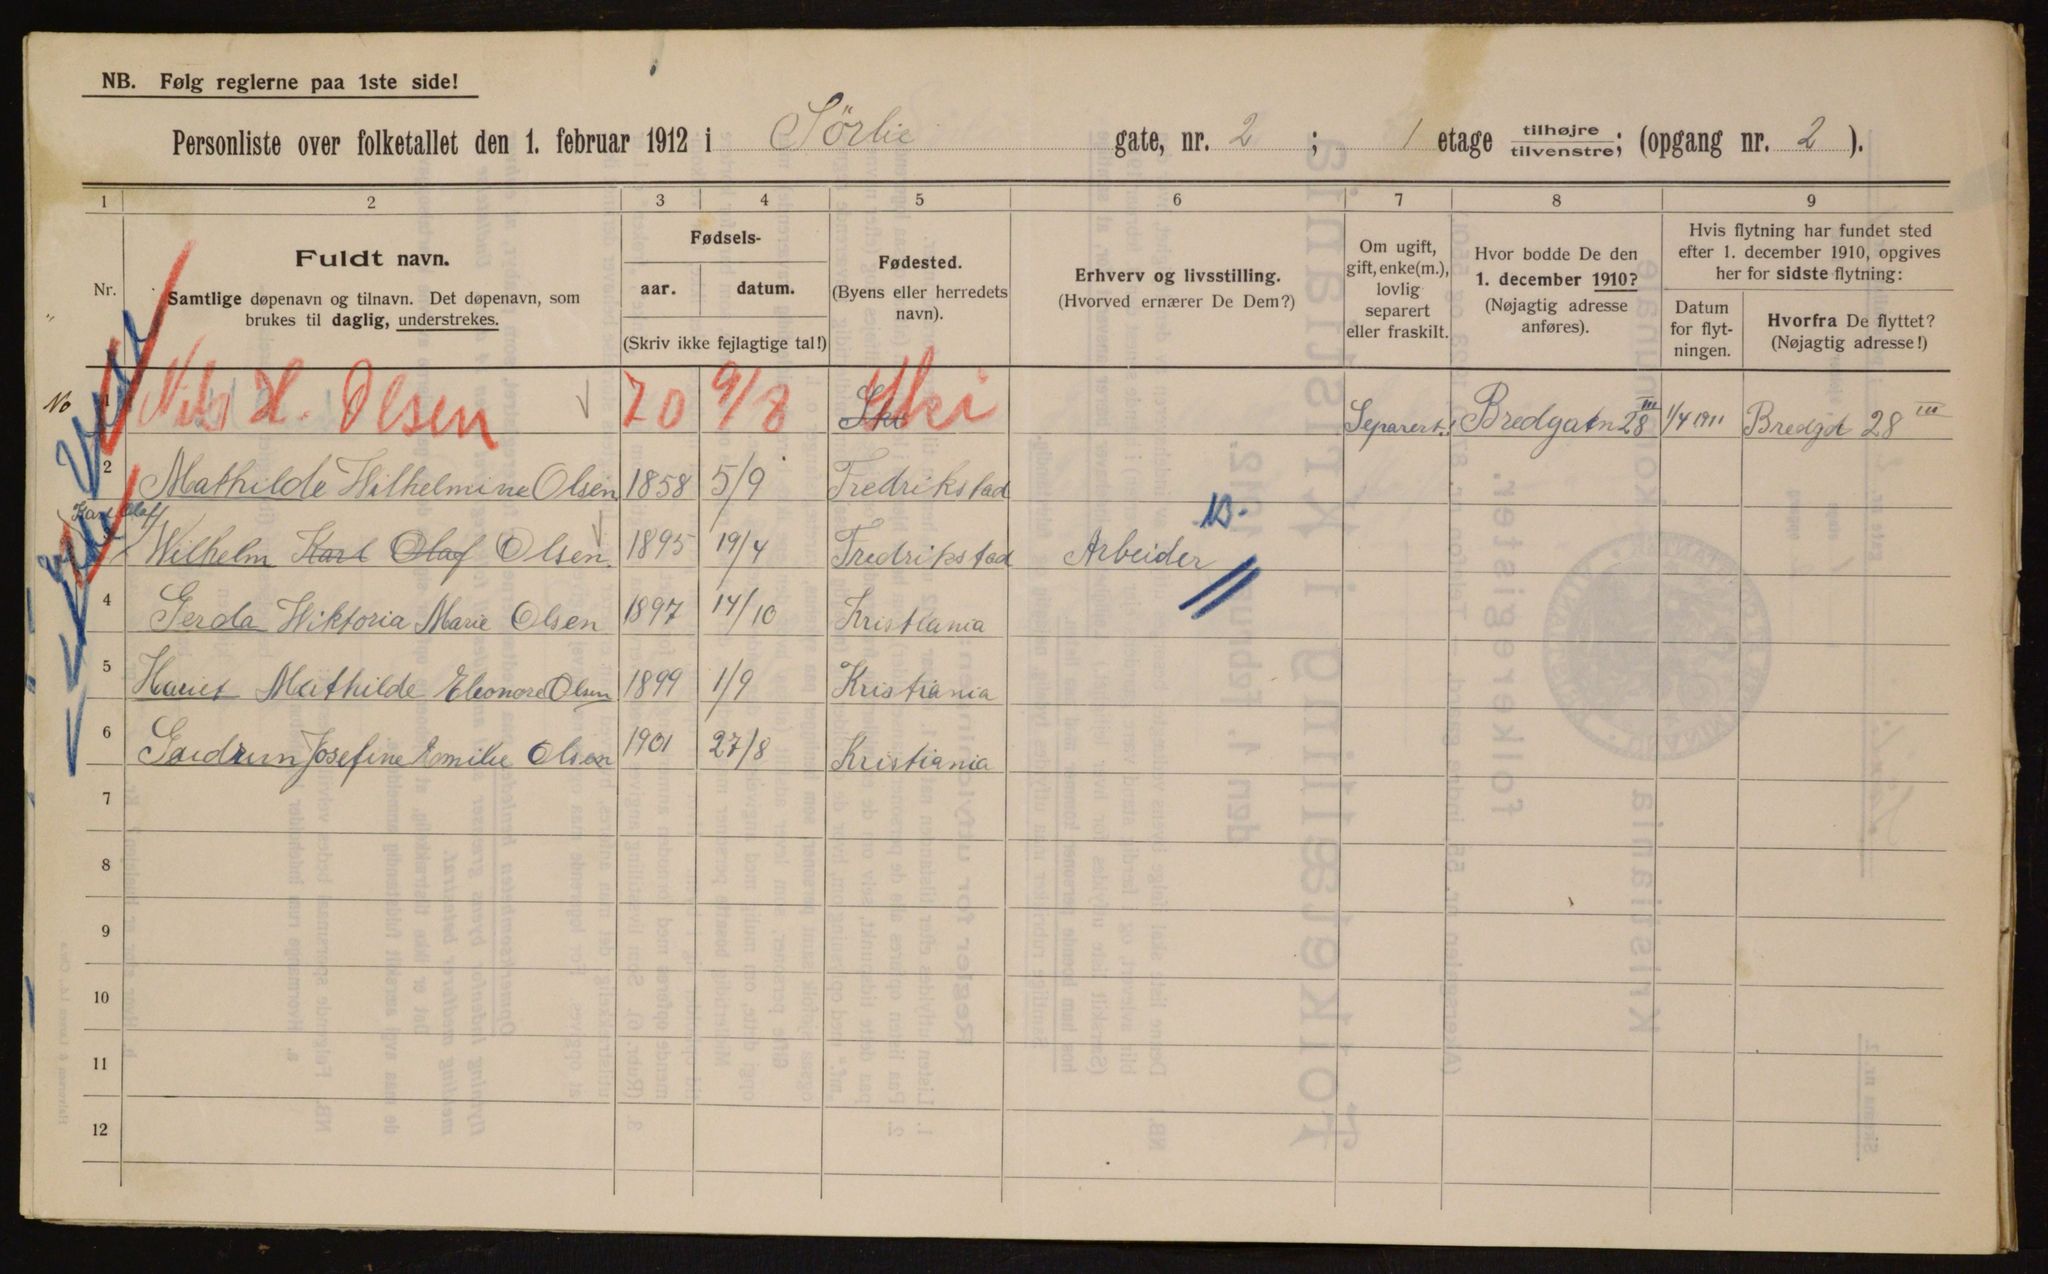 NB. Følg reglerne paa 1ste side!
Personliste over folketallet den 1. februar 1912 i Sörlie gate, nr. 2 ; 1 etage tilhøjre/tilvenstre; (opgang nr. 2 ).
1 2 3 4 5 6 7 8 9
Nr.
Fuldt navn.
Samtlige døpenavn og tilnavn. Det døpenavn, som
brukes til daglig, understrekes.
Fødsels-
aar. datum.
(Skriv ikke fejlagtige tal!)
Fødested.
(Byens eller herredets
navn).
Erhverv og livsstilling.
(Hvorved ernærer De Dem?)
Om ugift,
gift, enke(m.),
lovlig
separert
eller fraskilt.
Hvor bodde De den
1. december 1910?
(Nøjagtig adresse
anføres).
Hvis flytning har fundet sted
efter 1. december 1910, opgives
her for sidste flytning:
Datum
for flyt-
ningen.
Hvorfra De flyttet?
(Nøjagtig adresse!)
No 1 Nils H. Olsen 70 9/8 Ski Separert. Bredgatn 28 III 1/4 1911 Bredgt 28 III
2 Mathilde Wilhelmine Olsen 1858 5/9 Fredrikstad
Karl Olaf
3 Wilhelm Karl Olaf Olsen 1895 19/4 Fredrikstad Arbeider
4 Gerda Wiktoria Marie Olsen 1897 14/10 Kristiania
5 Mathilde Eleonore Olsen 1899 1/9 Kristiania
6 Gudrun Josefine Emilie Olsen 1901 27/8 Kristiania
7
8
9
10
11
12